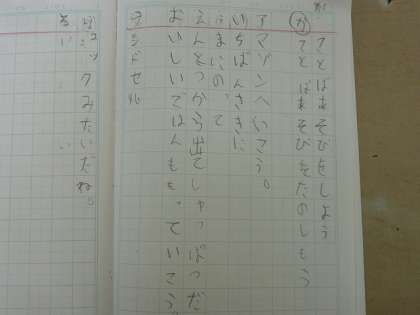 ことばあそびをしよう
か ことばあそびをたのしもう
アマゾンへいこう。
いちばんさきに
うまにのって
えんとつから出てしゅっぱつだ
おいしいごはんももっていこう。
ランドセル
みたいだね。